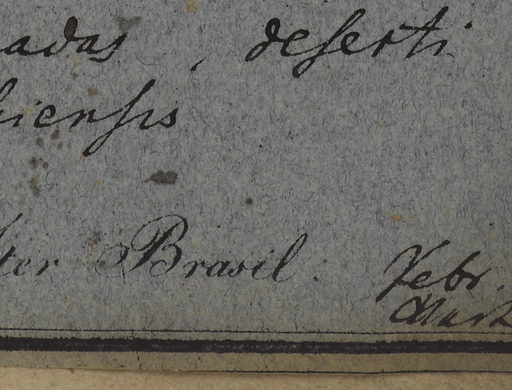 adas, deserti
iensis
Iter Brasil.
Febr.
Mart